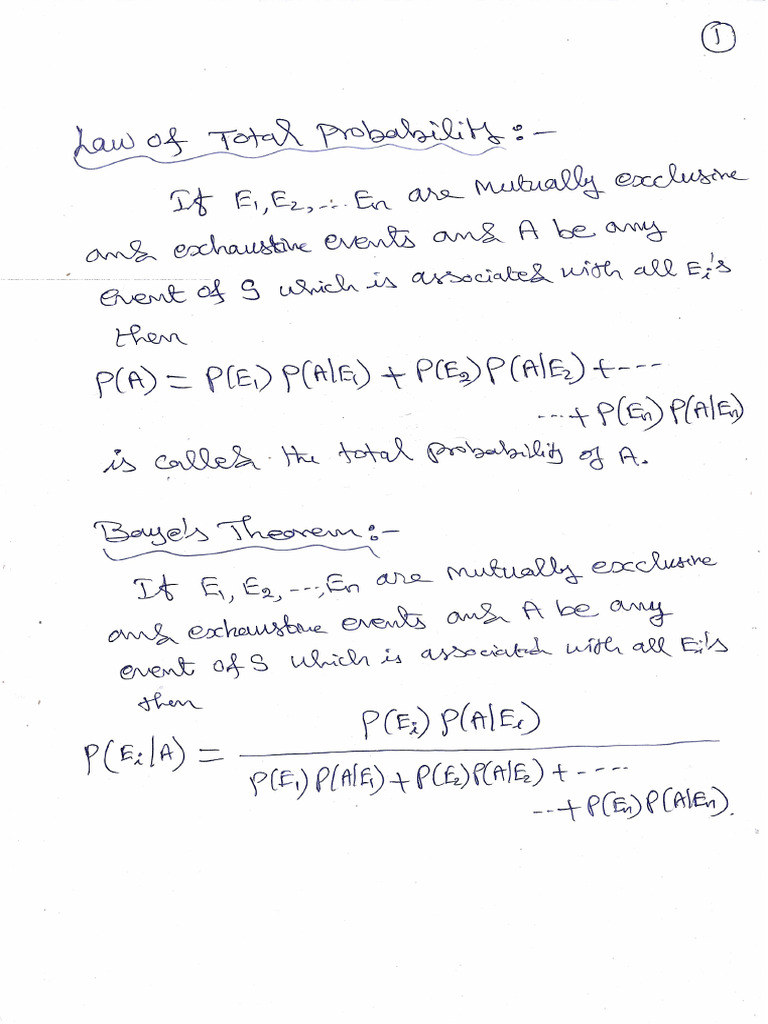 1
Law of Total Probability :-
If E₁, E₂, ... En are mutually exclusive
and exhaustive events and A be any
event of S which is associated with all Ei's
then
P(A) = P(E₁) P(A|E₁) + P(E₂) P(A|E₂) + ----
... + P(En) P(A|En)
is called the total probability of A.
Baye's Theorem :-
If E₁, E₂, ---, En are mutually exclusive
and exhaustive events and A be any
event of S which is associated with all Ei's
then
P(Ei|A) = P(Ei) P(A|Ei)
P(E₁) P(A|E₁) + P(E₂) P(A|E₂) + ----
... + P(En) P(A|En).